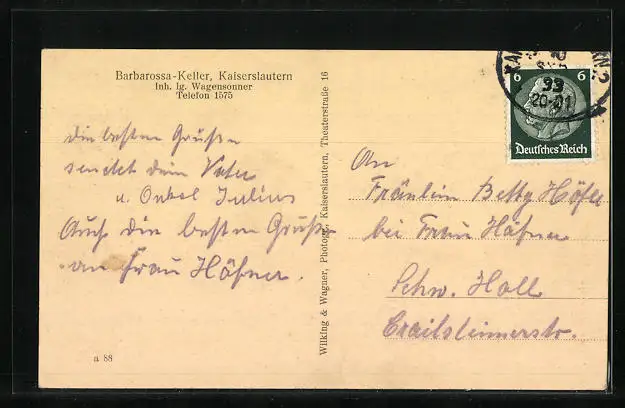 Barbarossa-Keller, Kaiserslautern
Inh. Ig. Wagensonner
Telefon 1575
die besten Grüße
sendet dein Vater
u. Onkel Julius
Auch die besten Grüße
an Frau Höfner.
a 88
Wilking & Wagner, Photogr., Kaiserslautern, Theaterstraße 16
6 6
Deutsches Reich
33
20-21
An
Fräulein Betty
bei Frau Höfner
Schw. Hall
Crailsheimerstr.